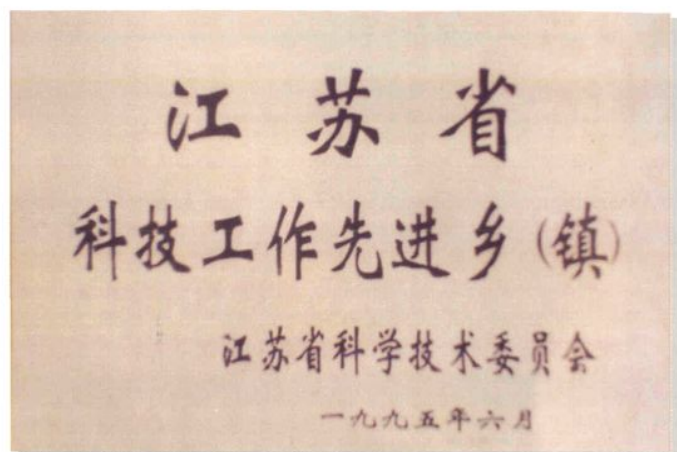 江苏省
科技工作先进乡(镇)
江苏省科学技术委员会
一九九五年六月